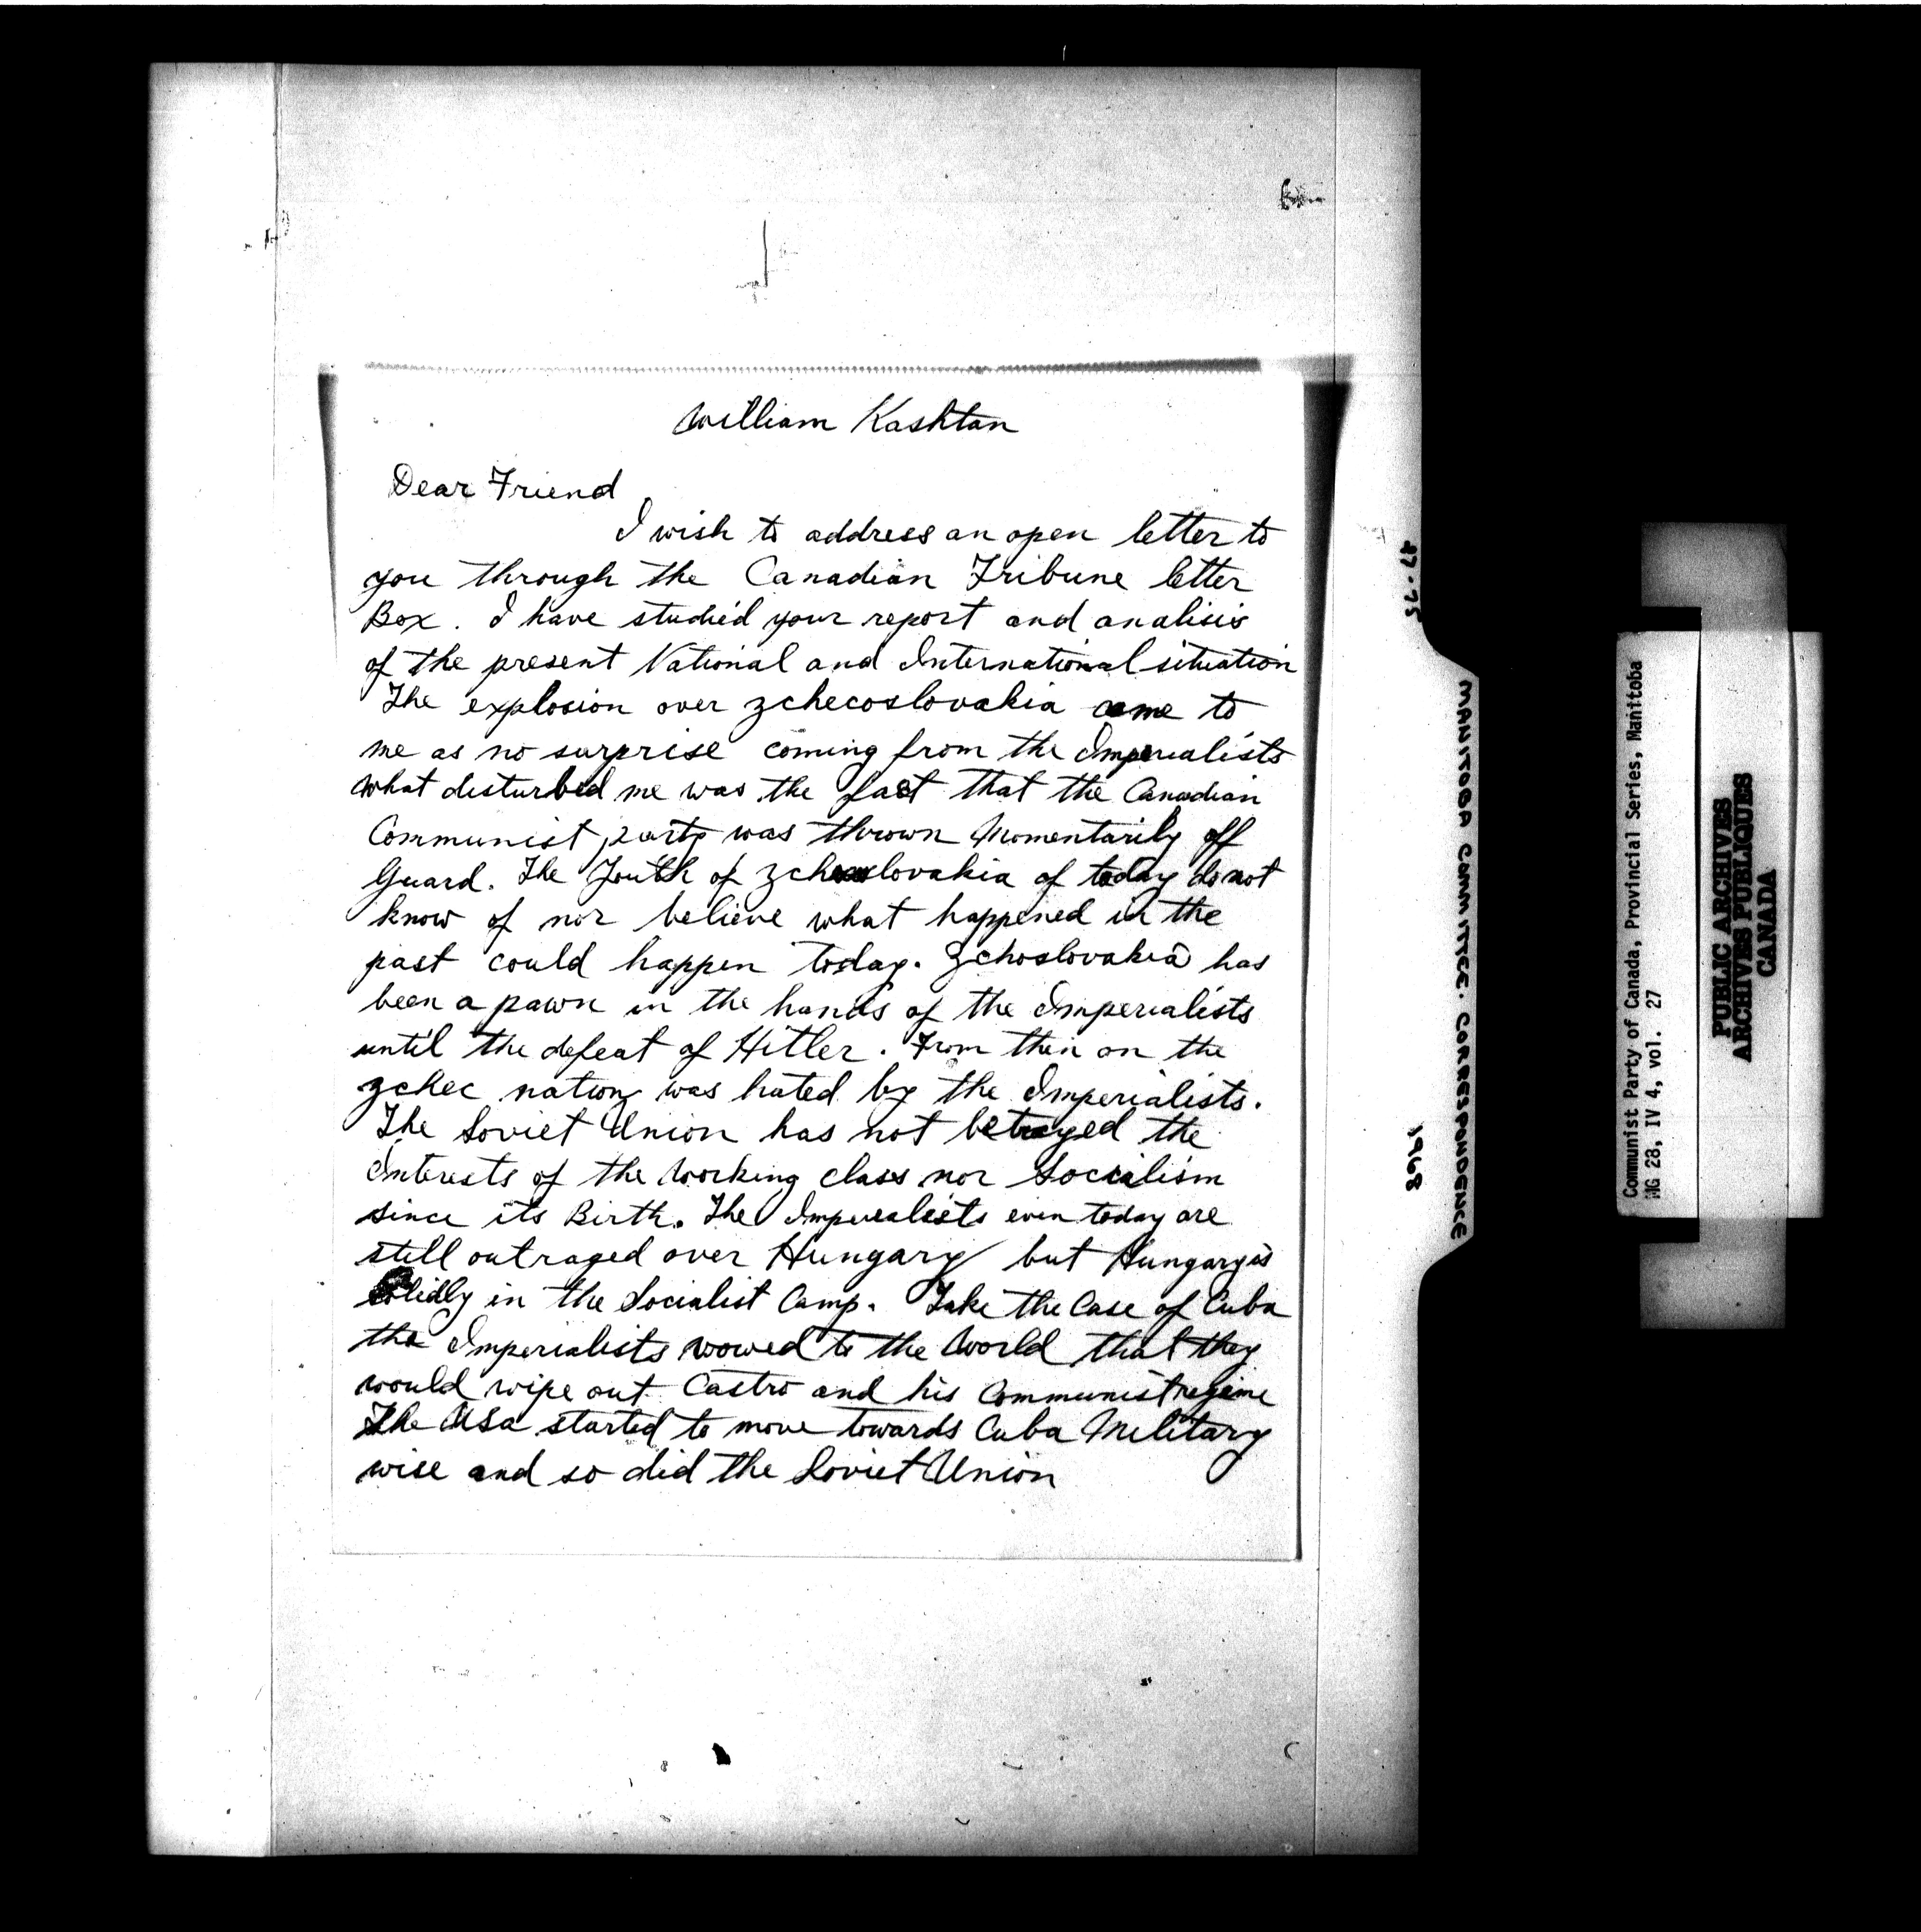 William Kashtan
Dear Friend
I wish to address an open letter to
you through the Canadian Tribune letter
Box. I have studied your report and analisis
of the present National and International situation
The explosion over zchecoslovakia came to
me as no surprise coming from the Imperialists
what disturbed me was the fact that the Canadian
Communist party was thrown Momentarily off
Guard. The Youth of zchecoslovakia of today do not
know of nor believe what happened in the
past could happen today. Zchoslovakia has
been a pawn in the hands of the Imperialists
until the defeat of Hitler. From then on the
zchec nation was hated by the Imperialists.
The Soviet Union has not betrayed the
Interests of the working class nor Socialism
since its Birth. The Imperealists even today are
still outraged over Hungary but Hungary is
Solidly in the Socialist Camp. Take the Case of Cuba
the Imperialists wowed to the World that they
would wipe out Castro and his Communist regime
The USa started to move towards Cuba Military
wise and so did the Soviet Union
27-25
MANITOBA COMMITTEE. CORRESPONDENCE
1968
Communist Party of Canada, Provincial Series, Manitoba
MG 28, IV 4, vol. 27
PUBLIC ARCHIVES
ARCHIVES PUBLIQUES
CANADA